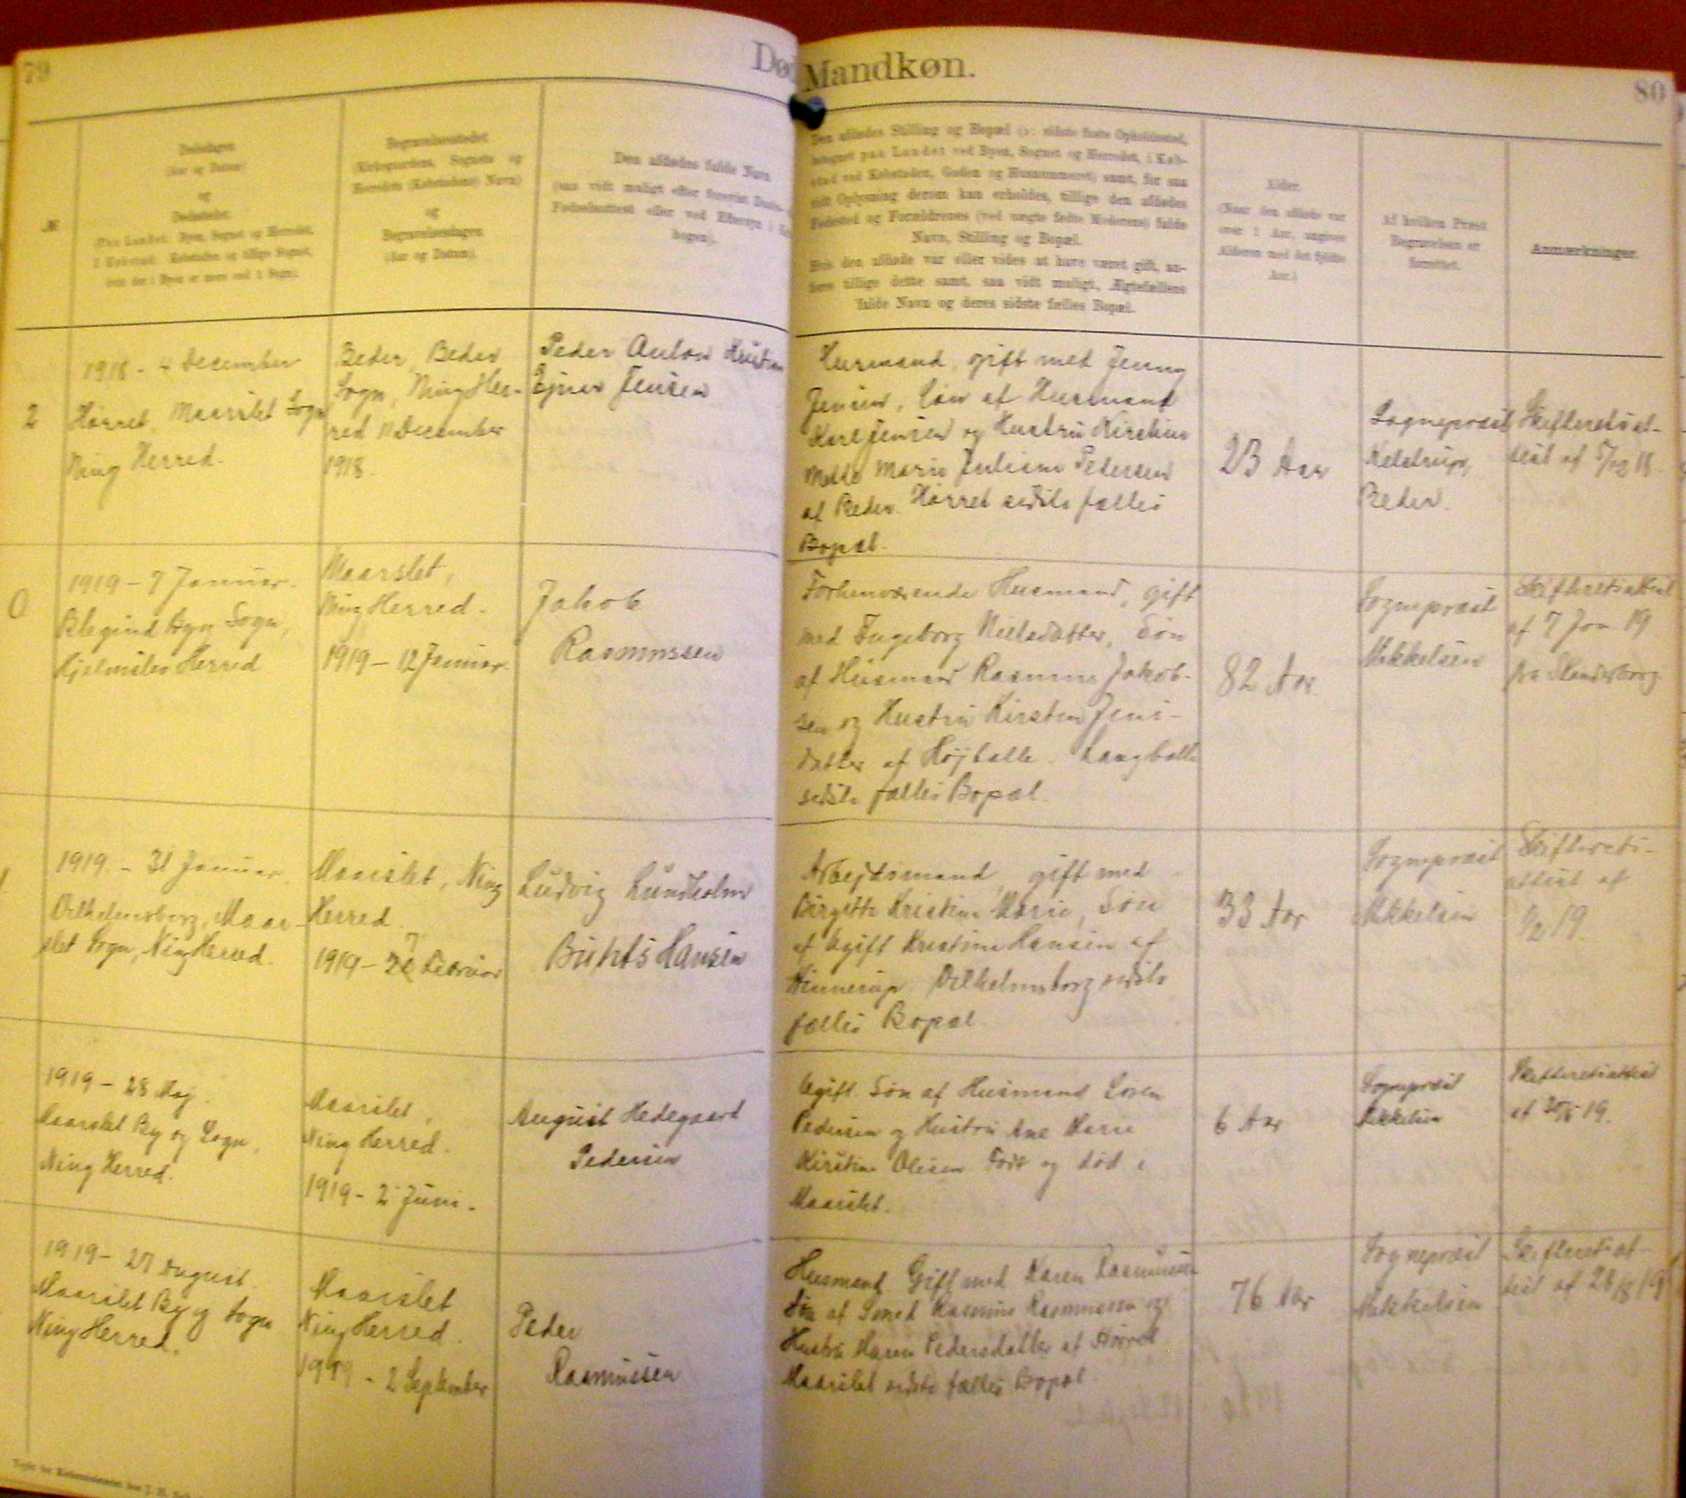 79
Dø
Mandkøn.
80
№
Dødsdagen
(Aar og Datum)
og
Dødsstedet.
(Paa Landet: Byen, Sognet og Herredet,
Begravelsesstedet
(Kirkegaardens, Sognets og
Herredets (Købstadens) Navn)
og
Begravelsesdagen
(Aar og Datum).
Den afdødes fulde Navn
Den afdødes Stilling og Bopæl (o: sidste faste Opholdssted,
betegnet paa Landet ved Byen, Sognet og Herredet, i Køb-
stad ved Købstaden, Gaden og Husnummeret) samt, for saa
vidt Oplysning derom kan erholdes, tillige den afdødes
Fødested og Forældrenes (ved uægte fødte Moderens) fulde
Navn, Stilling og Bopæl.
Hvis den afdøde var eller vides at have været gift, an-
føres tillige dette samt, saa vidt muligt, Ægtefællens
fulde Navn og deres sidste fælles Bopæl.
Alder.
(Naar den afdøde var
over 1 Aar, angives
Alderen med det fyldte
Aar.)
Af hvilken Præst
Begravelsen er
forrettet.
Anmærkninger.
2
1918 - 4 December
Hørret, Maarslet Sogn
Ning Herred.
Beder, Beder
Sogn, Ning Her-
red 11 December
1918.
Peder Anton Kristian
Ejner Jensen
Husmand, gift med Jenny
Jensen, Søn af Husmand
Karl Jensen og Hustru Kirstine
Mette Marie Juliane Pedersen
af Beder. Hørret sidste fælles
Bopæl.
23 Aar
Sognepræst
Kelstrup,
Beder.
Skifteretsat-
test af 5/12 18.
0
1919 - 7 Januar.
Blegind By og Sogn,
Hjelmslev Herred
Maarslet,
Ning Herred.
1919 - 12 Januar.
Jakob
Rasmussen
Forhenværende Husmand, gift
med Ingeborg Nielsdatter, Søn
af Husmand Rasmus Jakob-
sen og Hustru Kirsten Jens-
datter af Højballe. Langballe
sidste fælles Bopæl.
82 Aar.
Sognepræst
Mikkelsen
Skifteretsattest
af 7 Jan 19
fra Skanderborg.
1919 - 31 Januar.
Vilhelmsborg, Maar-
slet Sogn, Ning Herred.
Maarslet, Ning
Herred.
Ludvig Lundholm
Hansen
Arbejdsmand, gift med
Birgitte Kristine Marie, Søn
af Ugift Kristine Hansen af
Hinnerup. Vilhelmsborg sidste
fælles Bopæl
33 Aar
Sognepræst
Mikkelsen
Skifterets-
attest af
1/2 19.
1919 - 28 Maj.
Maarslet By og Sogn,
Ning Herred.
Maarslet,
Ning Herred.
1919 - 2 Juni.
August Hedegaard
Pedersen
Ugift. Søn af Husmand Søren
Pedersen og Hustru Ane Marie
Kirstine Olesen Født og død i
Maarslet.
6 Aar
Sognepræst
Mikkelsen
Skifteretsattest
af 30/5 19.
1919 - 27 August.
Maarslet By og Sogn
Ning Herred.
Maarslet
Ning Herred.
1919 - 2 September
Peder
Rasmussen
Husmand, Gift med Karen Rasmussen
Søn af Smed Rasmus Rasmussen og
Hustru Maren Pedersdatter af Hørret
Maarslet sidste fælles Bopæl.
76 Aar
Sognepræst
Mikkelsen
Skifteretsat-
test af 28/8 19